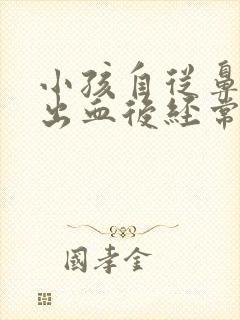 小孩自從鼻
出血後經常
國孝金